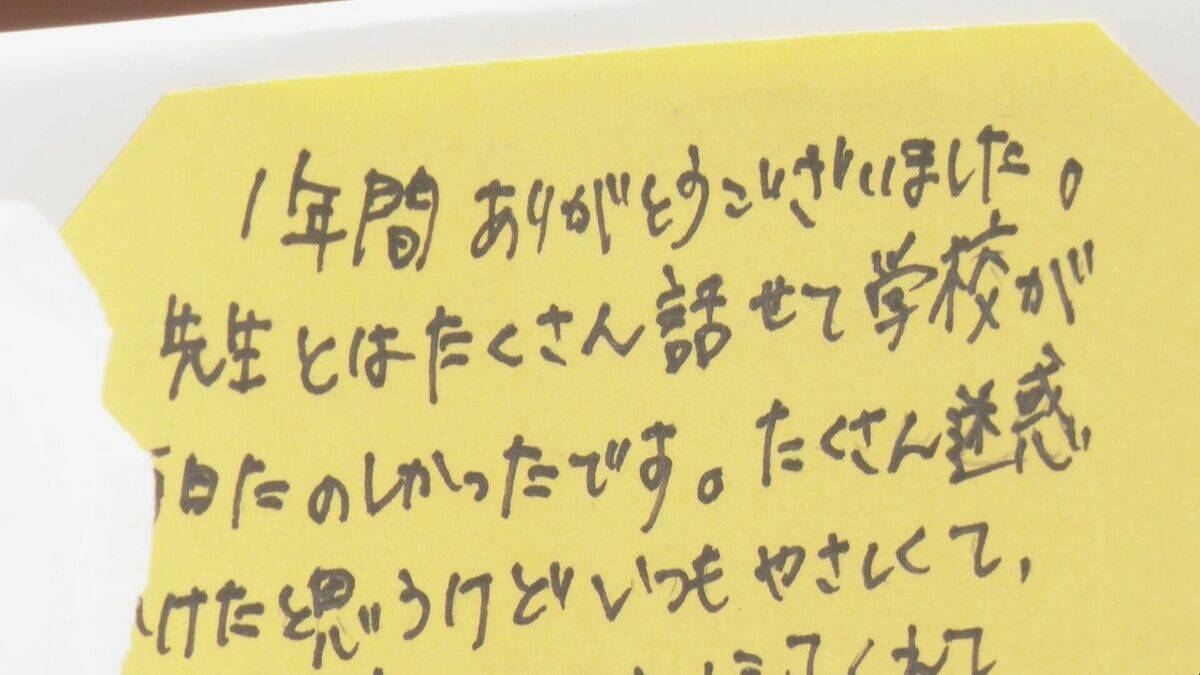 1年間ありがとうございました。
先生とはたくさん話せて学校が
日たのしかったです。たくさん迷惑
けたと思うけどいつもやさしくて、
くれて